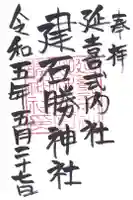 奉拝
延喜式内社
建石勝神社
令和五年五月二十七日